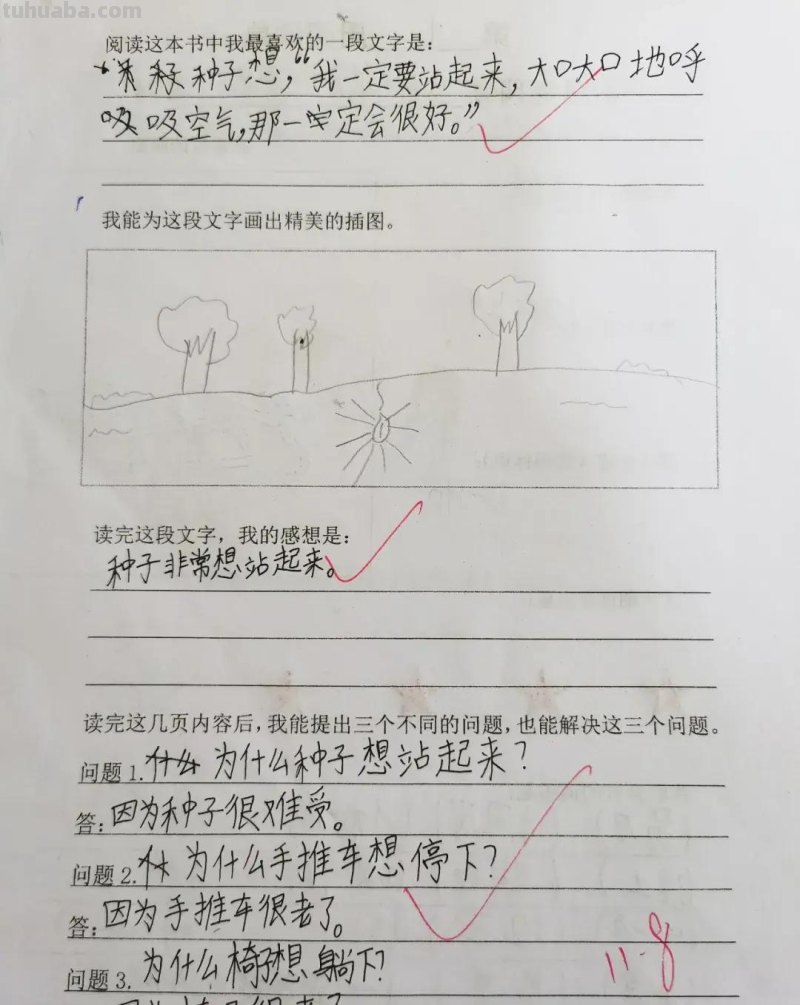 tuhuaba.com
阅读这本书中我最喜欢的一段文字是：
种子想，“我一定要站起来，大口大口地呼
吸空气，那一定会很好。”
我能为这段文字画出精美的插图。
读完这段文字，我的感想是：
种子非常想站起来。
读完这几页内容后，我能提出三个不同的问题，也能解决这三个问题。
问题1.为什么种子想站起来？
答：因为种子很难受。
问题2.为什么手推车想停下？
答：因为手推车很老了。
11.8
问题3.为什么椅子想躺下？